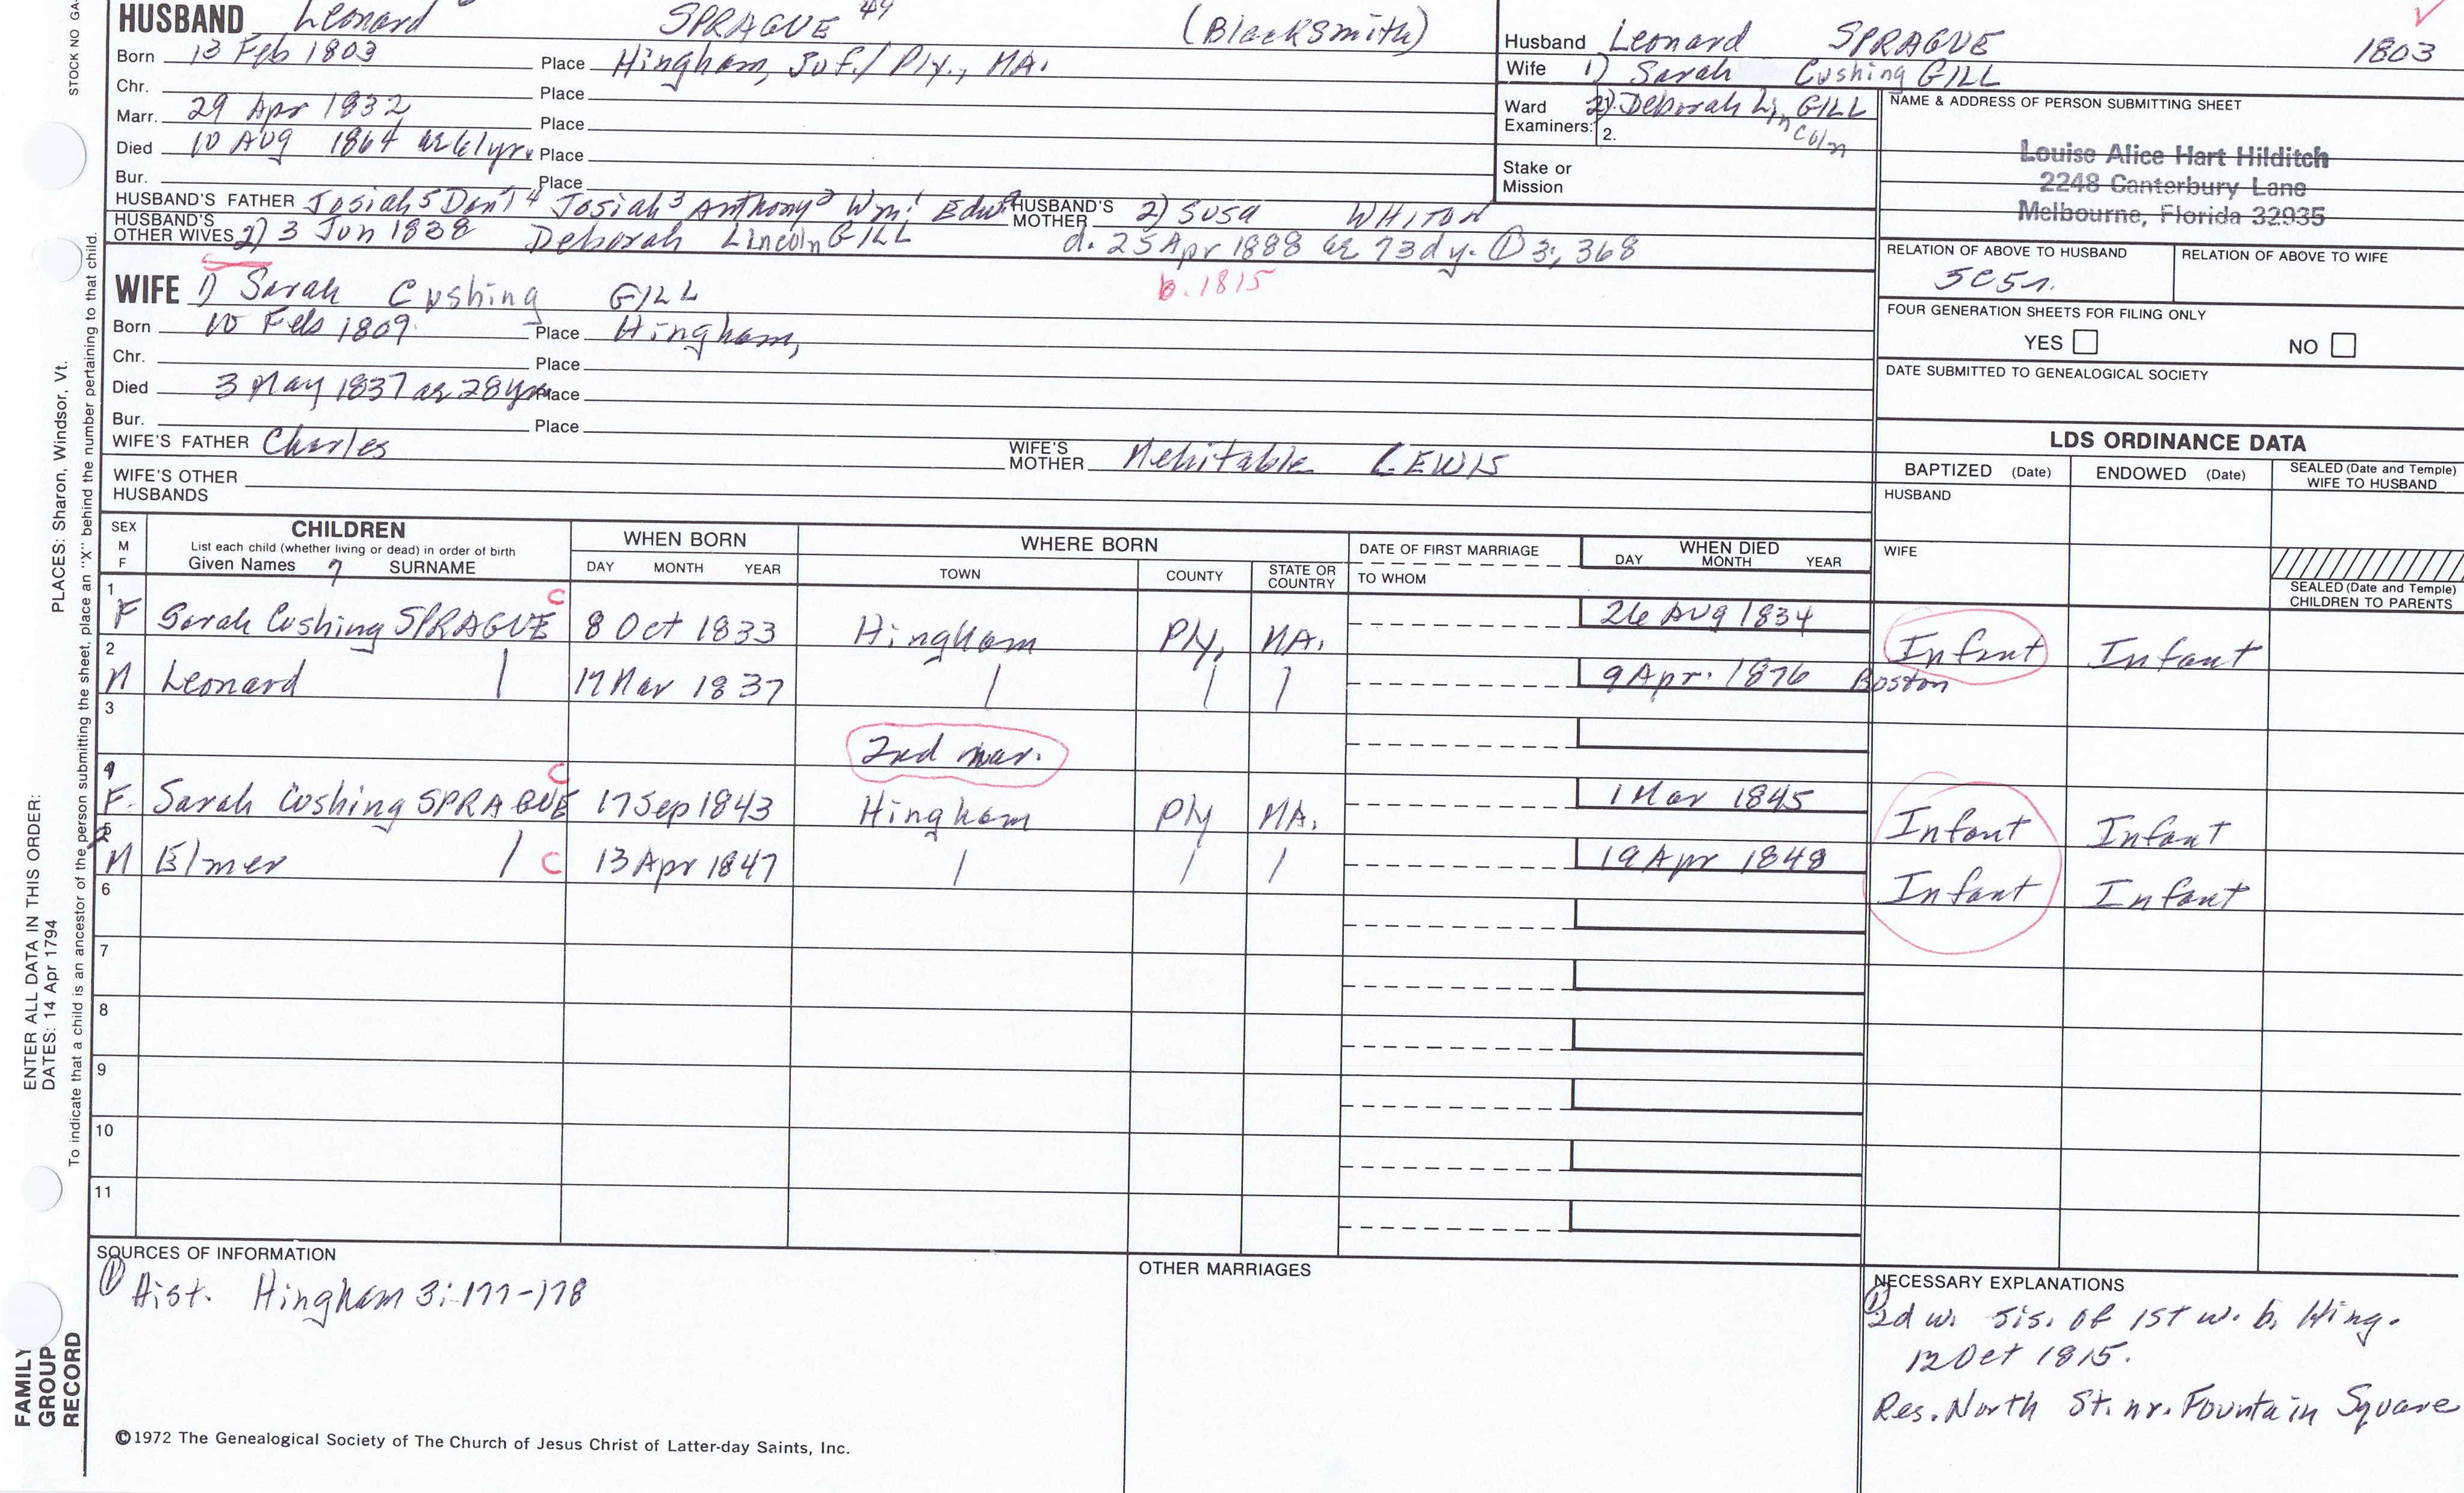 STOCK NO GA-
HUSBAND Leonard SPRAGUE 49 (Blacksmith)
Born 13 Feb 1803 Place Hingham, Suf./Ply., MA.
Chr. Place
Marr. 29 Apr 1832 Place
Died 10 AUG 1864 ae 61yrs Place
Bur. Place
HUSBAND'S FATHER Josiah5 Danl4 Josiah3 Anthony2 Wm1 Edwd HUSBAND'S MOTHER 2) Susa WHITON
HUSBAND'S OTHER WIVES 2) 3 Jun 1838 Deborah Lincoln GILL d. 25 Apr 1888 ae 73dy. ① 3:, 368
b. 1815
WIFE 1) Sarah Cushing GILL
Born 10 Feb 1809. Place Hingham,
Chr. Place
Died 3 May 1837 ae 28yrs Place
Bur. Place
WIFE'S FATHER Charles WIFE'S MOTHER Mehitable LEWIS
WIFE'S OTHER HUSBANDS
Husband Leonard SPRAGUE 1803
Wife 1) Sarah Cushing GILL
Ward Examiners: 2). Deborah Lincoln GILL
2.
Stake or Mission
NAME & ADDRESS OF PERSON SUBMITTING SHEET
Louise Alice Hart Hilditch
2248 Canterbury Lane
Melbourne, Florida 32935
RELATION OF ABOVE TO HUSBAND RELATION OF ABOVE TO WIFE
5C5r.
FOUR GENERATION SHEETS FOR FILING ONLY
YES NO
DATE SUBMITTED TO GENEALOGICAL SOCIETY
LDS ORDINANCE DATA
BAPTIZED (Date) ENDOWED (Date) SEALED (Date and Temple) WIFE TO HUSBAND
HUSBAND
WIFE
SEALED (Date and Temple) CHILDREN TO PARENTS
SEX M F CHILDREN List each child (whether living or dead) in order of birth Given Names 7 SURNAME
WHEN BORN DAY MONTH YEAR
WHERE BORN TOWN COUNTY STATE OR COUNTRY
DATE OF FIRST MARRIAGE TO WHOM
WHEN DIED DAY MONTH YEAR
1 F Sarah Cushing SPRAGUE C 8 Oct 1833 Hingham Ply, MA. 26 AUG 1834 Infant Infant
2 M Leonard | 17 Mar 1837 | | | 9 Apr. 1876 Boston
3 2nd mar.
4 F. Sarah Cushing SPRAGUE C 17 Sep 1843 Hingham Ply MA. 1 Mar 1845 Infant Infant
5 M Elmer | C 13 Apr 1847 | | | 19 Apr 1848 Infant Infant
6
7
8
9
10
11
SOURCES OF INFORMATION
① Hist. Hingham 3:177-178
OTHER MARRIAGES
NECESSARY EXPLANATIONS
① 2d w. sis. of 1st w. b. Hing.
12 Oct 1815.
Res. North St. nr. Fountain Square
©1972 The Genealogical Society of The Church of Jesus Christ of Latter-day Saints, Inc.
FAMILY GROUP RECORD
ENTER ALL DATA IN THIS ORDER:
DATES: 14 Apr 1794
PLACES: Sharon, Windsor, Vt.
To indicate that a child is an ancestor of the person submitting the sheet, place an "X" behind the number pertaining to that child.